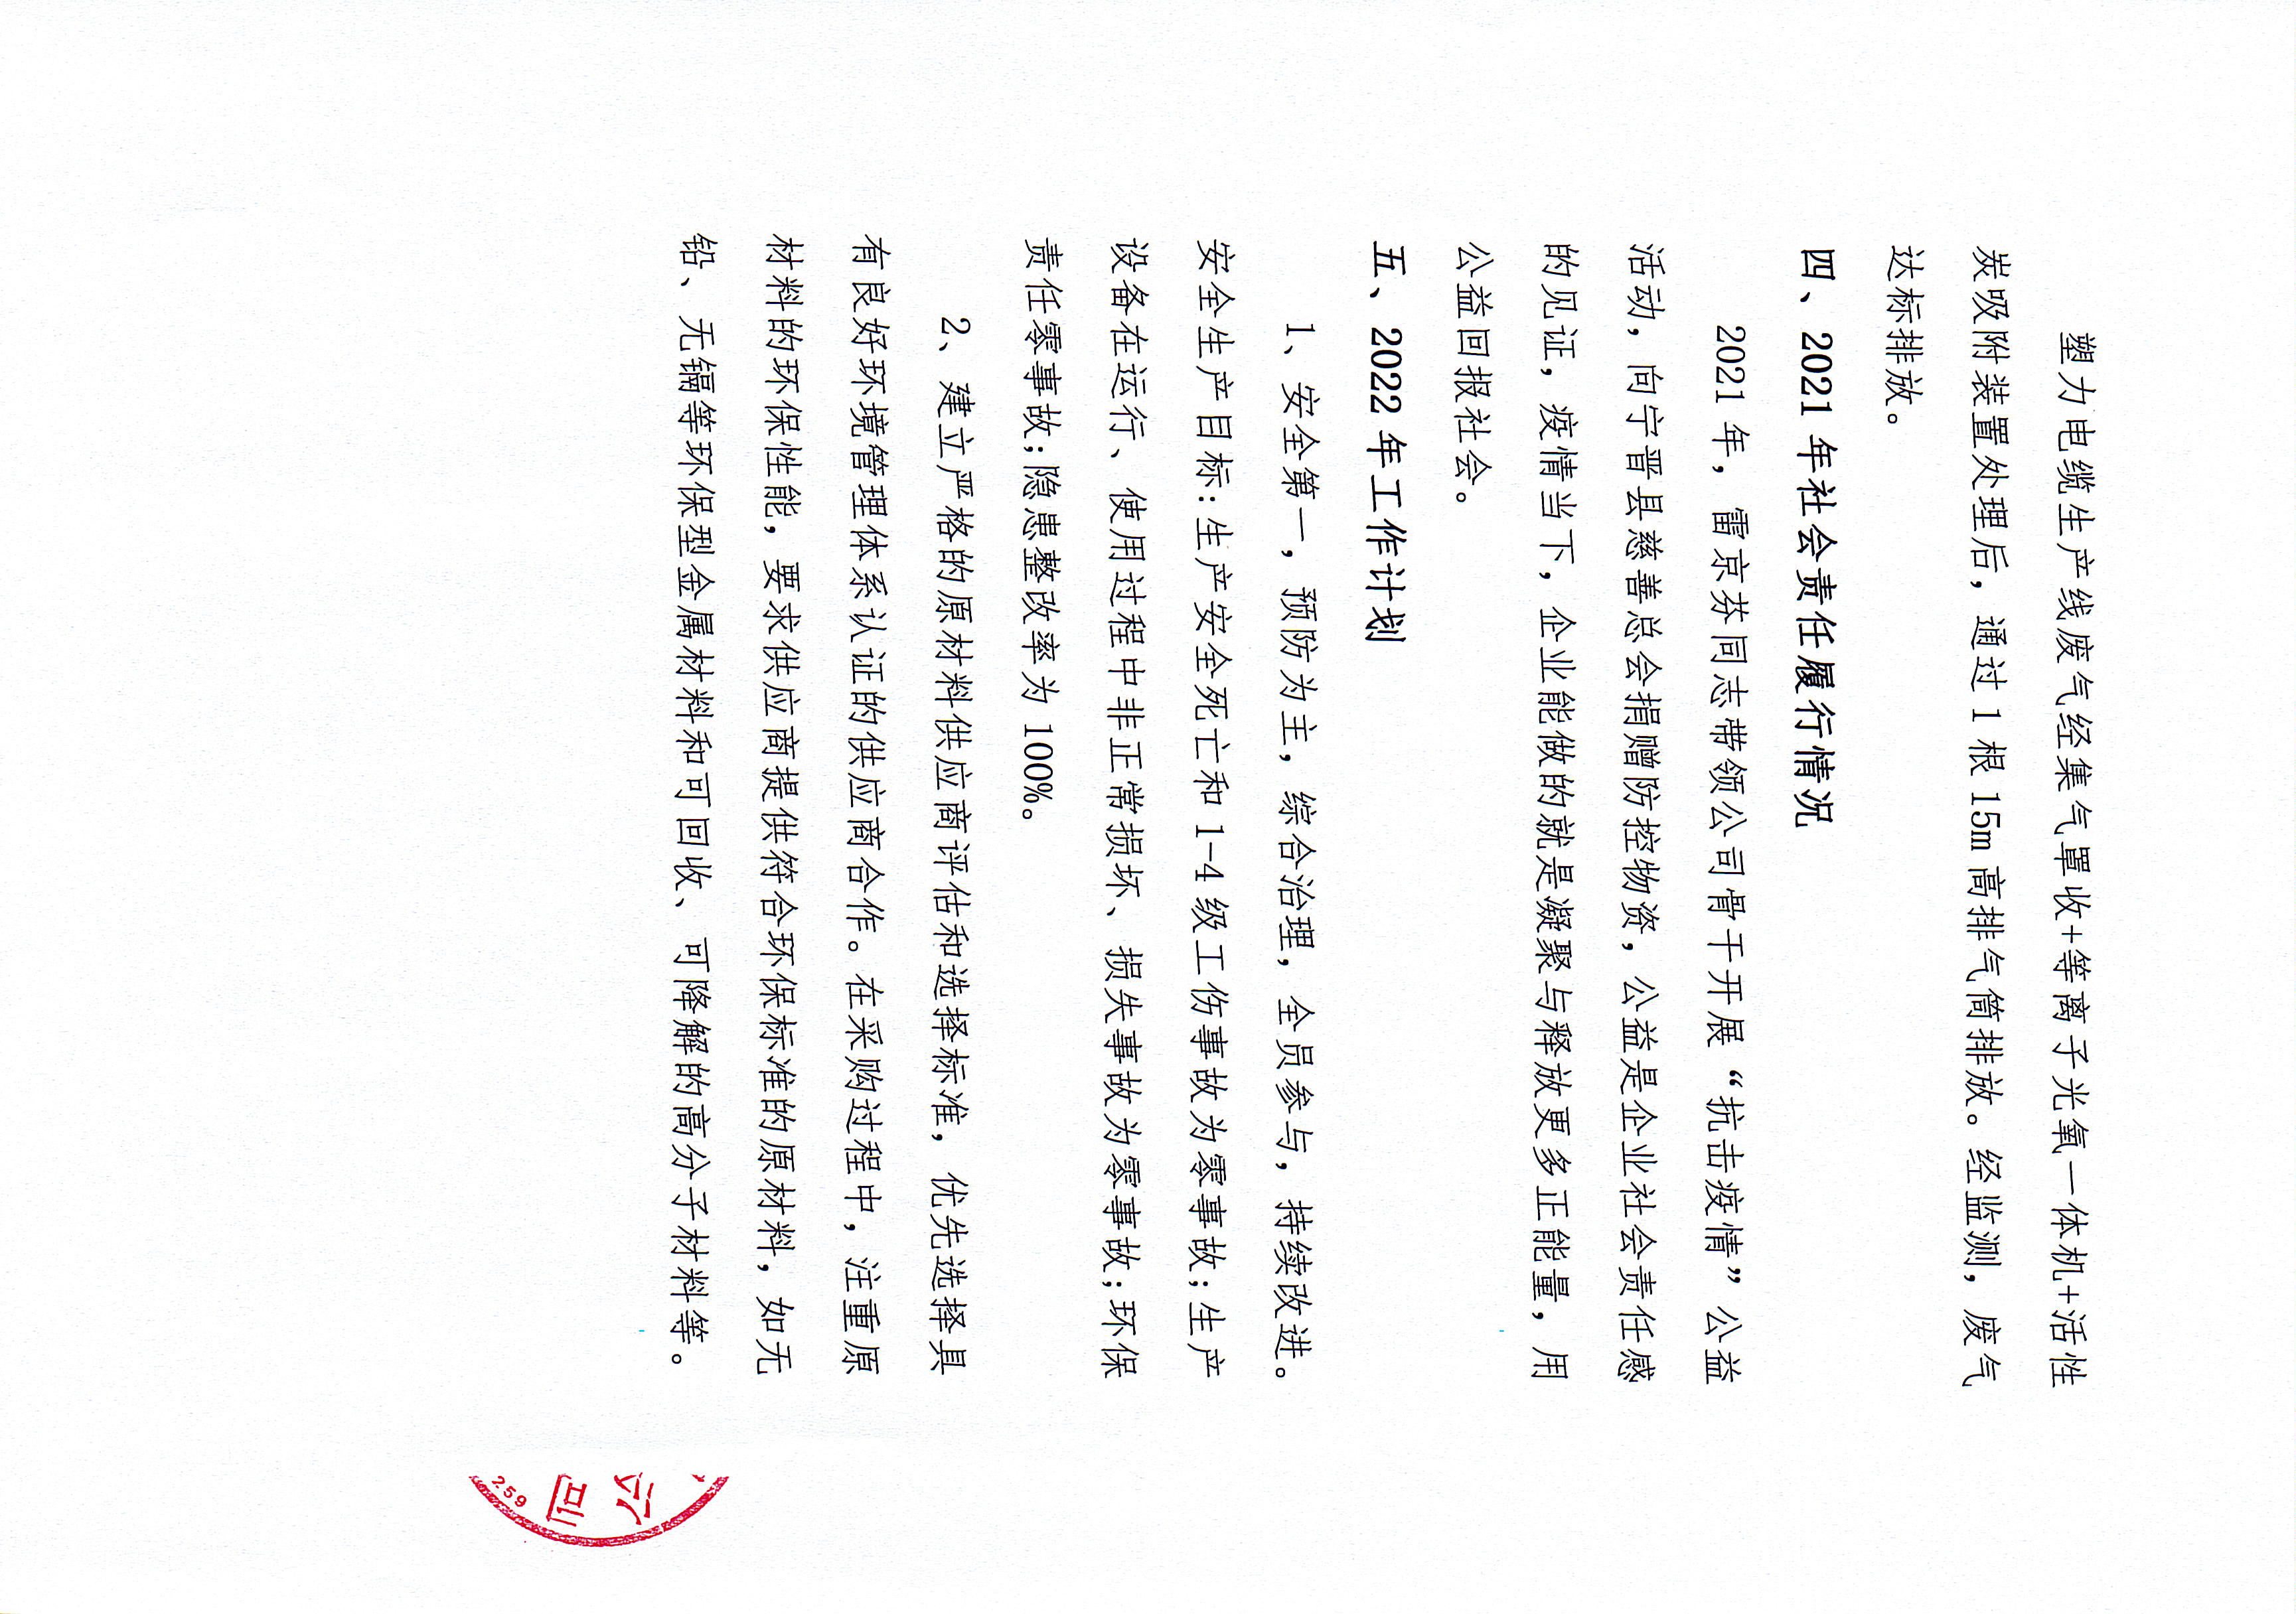 塑力电缆生产线废气经集气罩收+等离子光氧一体机+活性
炭吸附装置处理后，通过 1 根 15m 高排气筒排放。经监测，废气
达标排放。
四、2021 年社会责任履行情况
2021 年，雷京芬同志带领公司骨干开展“抗击疫情”公益
活动，向宁晋县慈善总会捐赠防控物资，公益是企业社会责任感
的见证，疫情当下，企业能做的就是凝聚与释放更多正能量，用
公益回报社会。
五、2022 年工作计划
1、安全第一，预防为主，综合治理，全员参与，持续改进。
安全生产目标：生产安全死亡和 1-4 级工伤事故为零事故；生产
设备在运行、使用过程中非正常损坏、损失事故为零事故；环保
责任零事故；隐患整改率为 100%。
2、建立严格的原材料供应商评估和选择标准，优先选择具
有良好环境管理体系认证的供应商合作。在采购过程中，注重原
材料的环保性能，要求供应商提供符合环保标准的原材料，如无
铅、无镉等环保型金属材料和可回收、可降解的高分子材料等。
公司
259